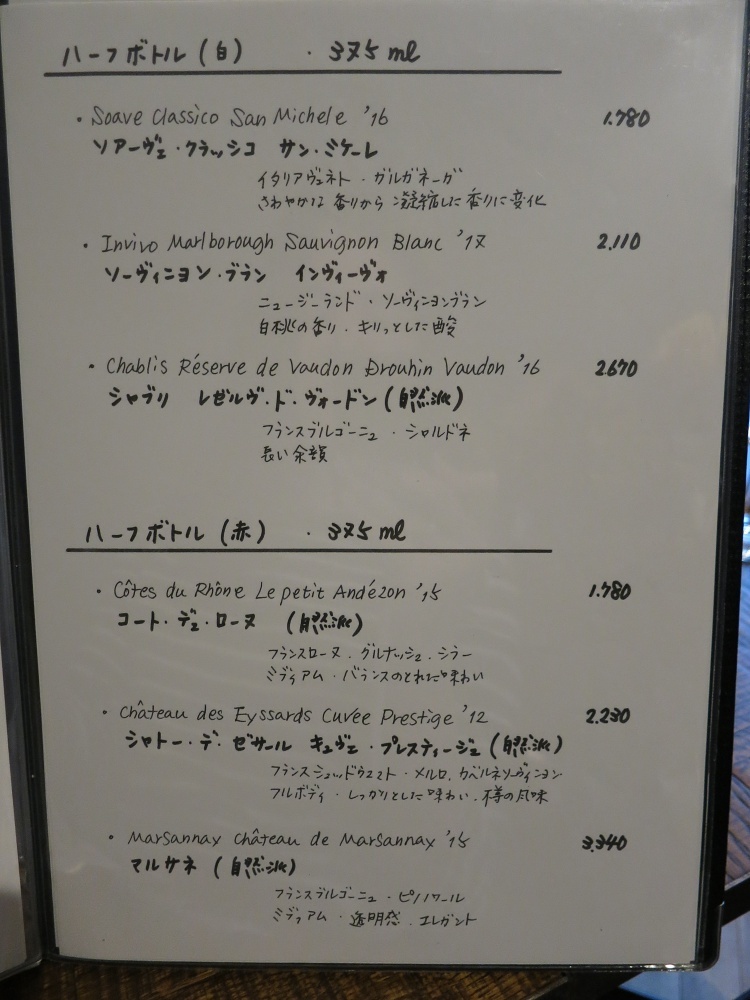 ハーフボトル(白) ・375ml
・Soave Classico San Michele '16 1.780
ソアーヴェ・クラッシコ サン・ミケーレ
イタリアヴェネト・ガルガネーガ
さわやかな香りから凝縮した香りに変化
・Invivo Marlborough Sauvignon Blanc '17 2.110
ソーヴィニヨン・ブラン インヴィーヴォ
ニュージーランド・ソーヴィニヨンブラン
白桃の香り・キリッとした酸
・Chablis Réserve de Vaudon Drouhin Vaudon '16 2.670
シャブリ レゼルヴ・ド・ヴォードン(自然派)
フランスブルゴーニュ・シャルドネ
長い余韻
ハーフボトル(赤) ・375ml
・Côtes du Rhône Le petit Andézon '15 1.780
コート・デュ・ローヌ (自然派)
フランスローヌ・グルナッシュ・シラー
ミディアム・バランスのとれた味わい
・Château des Eyssards Cuvée Prestige '12 2.230
シャトー・デ・ゼサール キュヴェ・プレスティージュ(自然派)
フランスシュッドウエスト・メルロ,カベルネソーヴィニヨン
フルボディ・しっかりとした味わい・樽の風味
・Marsannay Château de Marsannay '15 3.340
マルサネ (自然派)
フランスブルゴーニュ・ピノノワール
ミディアム・透明感・エレガント